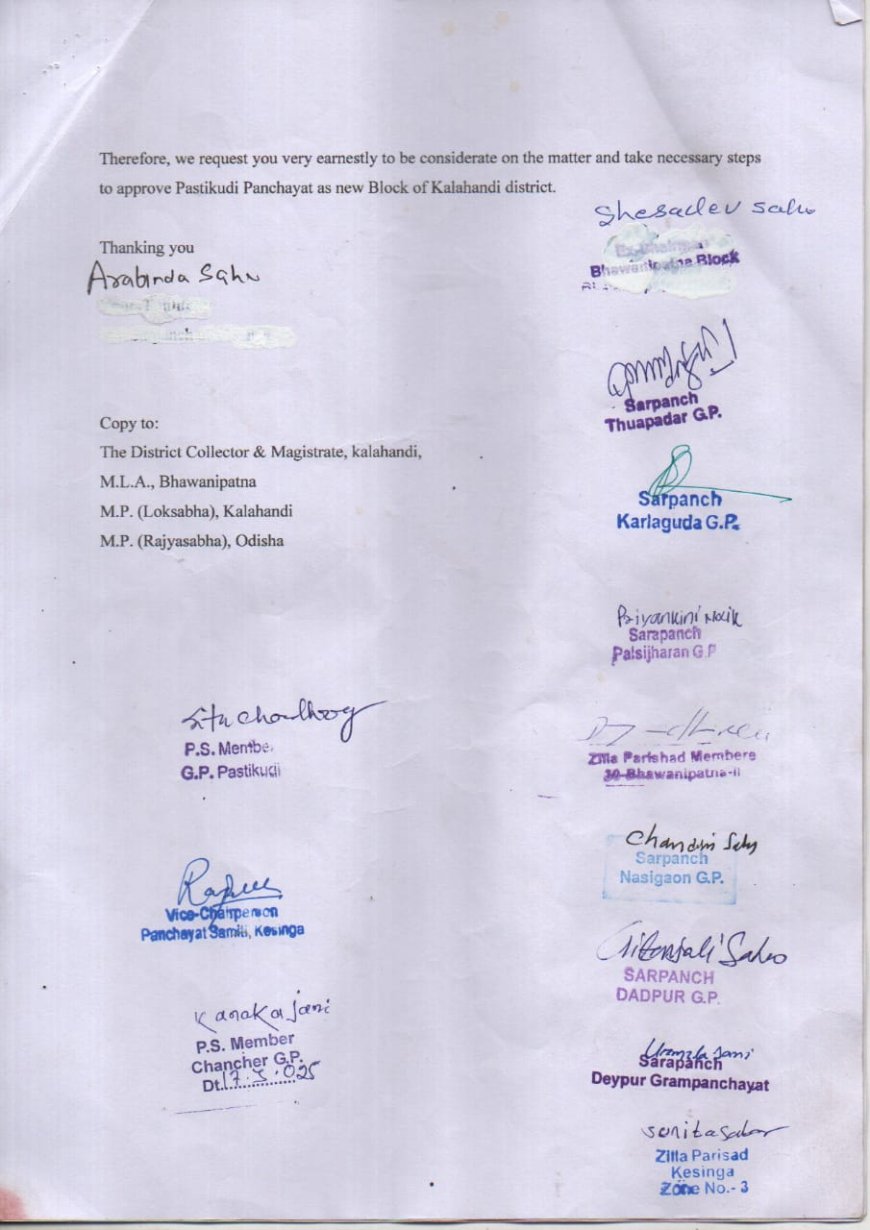 Therefore, we request you very earnestly to be considerate on the matter and take necessary steps
to approve Pastikudi Panchayat as new Block of Kalahandi district.
Shesadev Sahu
Thanking you
Arabinda Sahu
Bhawanipatna Block
Sarpanch
Thuapadar G.P.
Copy to:
The District Collector & Magistrate, kalahandi,
M.L.A., Bhawanipatna
M.P. (Loksabha), Kalahandi
M.P. (Rajyasabha), Odisha
Sarpanch
Karlaguda G.P.
Priyankini Naik
Sarapanch
Palsijharan G.P
P.S. Member
G.P. Pastikudi
Zilla Parishad Members
30-Bhawanipatna-II
Chandini Sahu
Sarpanch
Nasigaon G.P.
Vice-Chairperson
Panchayat Samiti, Kesinga
Gitanjali Sahu
SARPANCH
DADPUR G.P.
Kanaka jani
P.S. Member
Chancher G.P.
Dt.17.5.025
Urmila Jani
Sarapanch
Deypur Grampanchayat
Zilla Parisad
Kesinga
Zone No.- 3